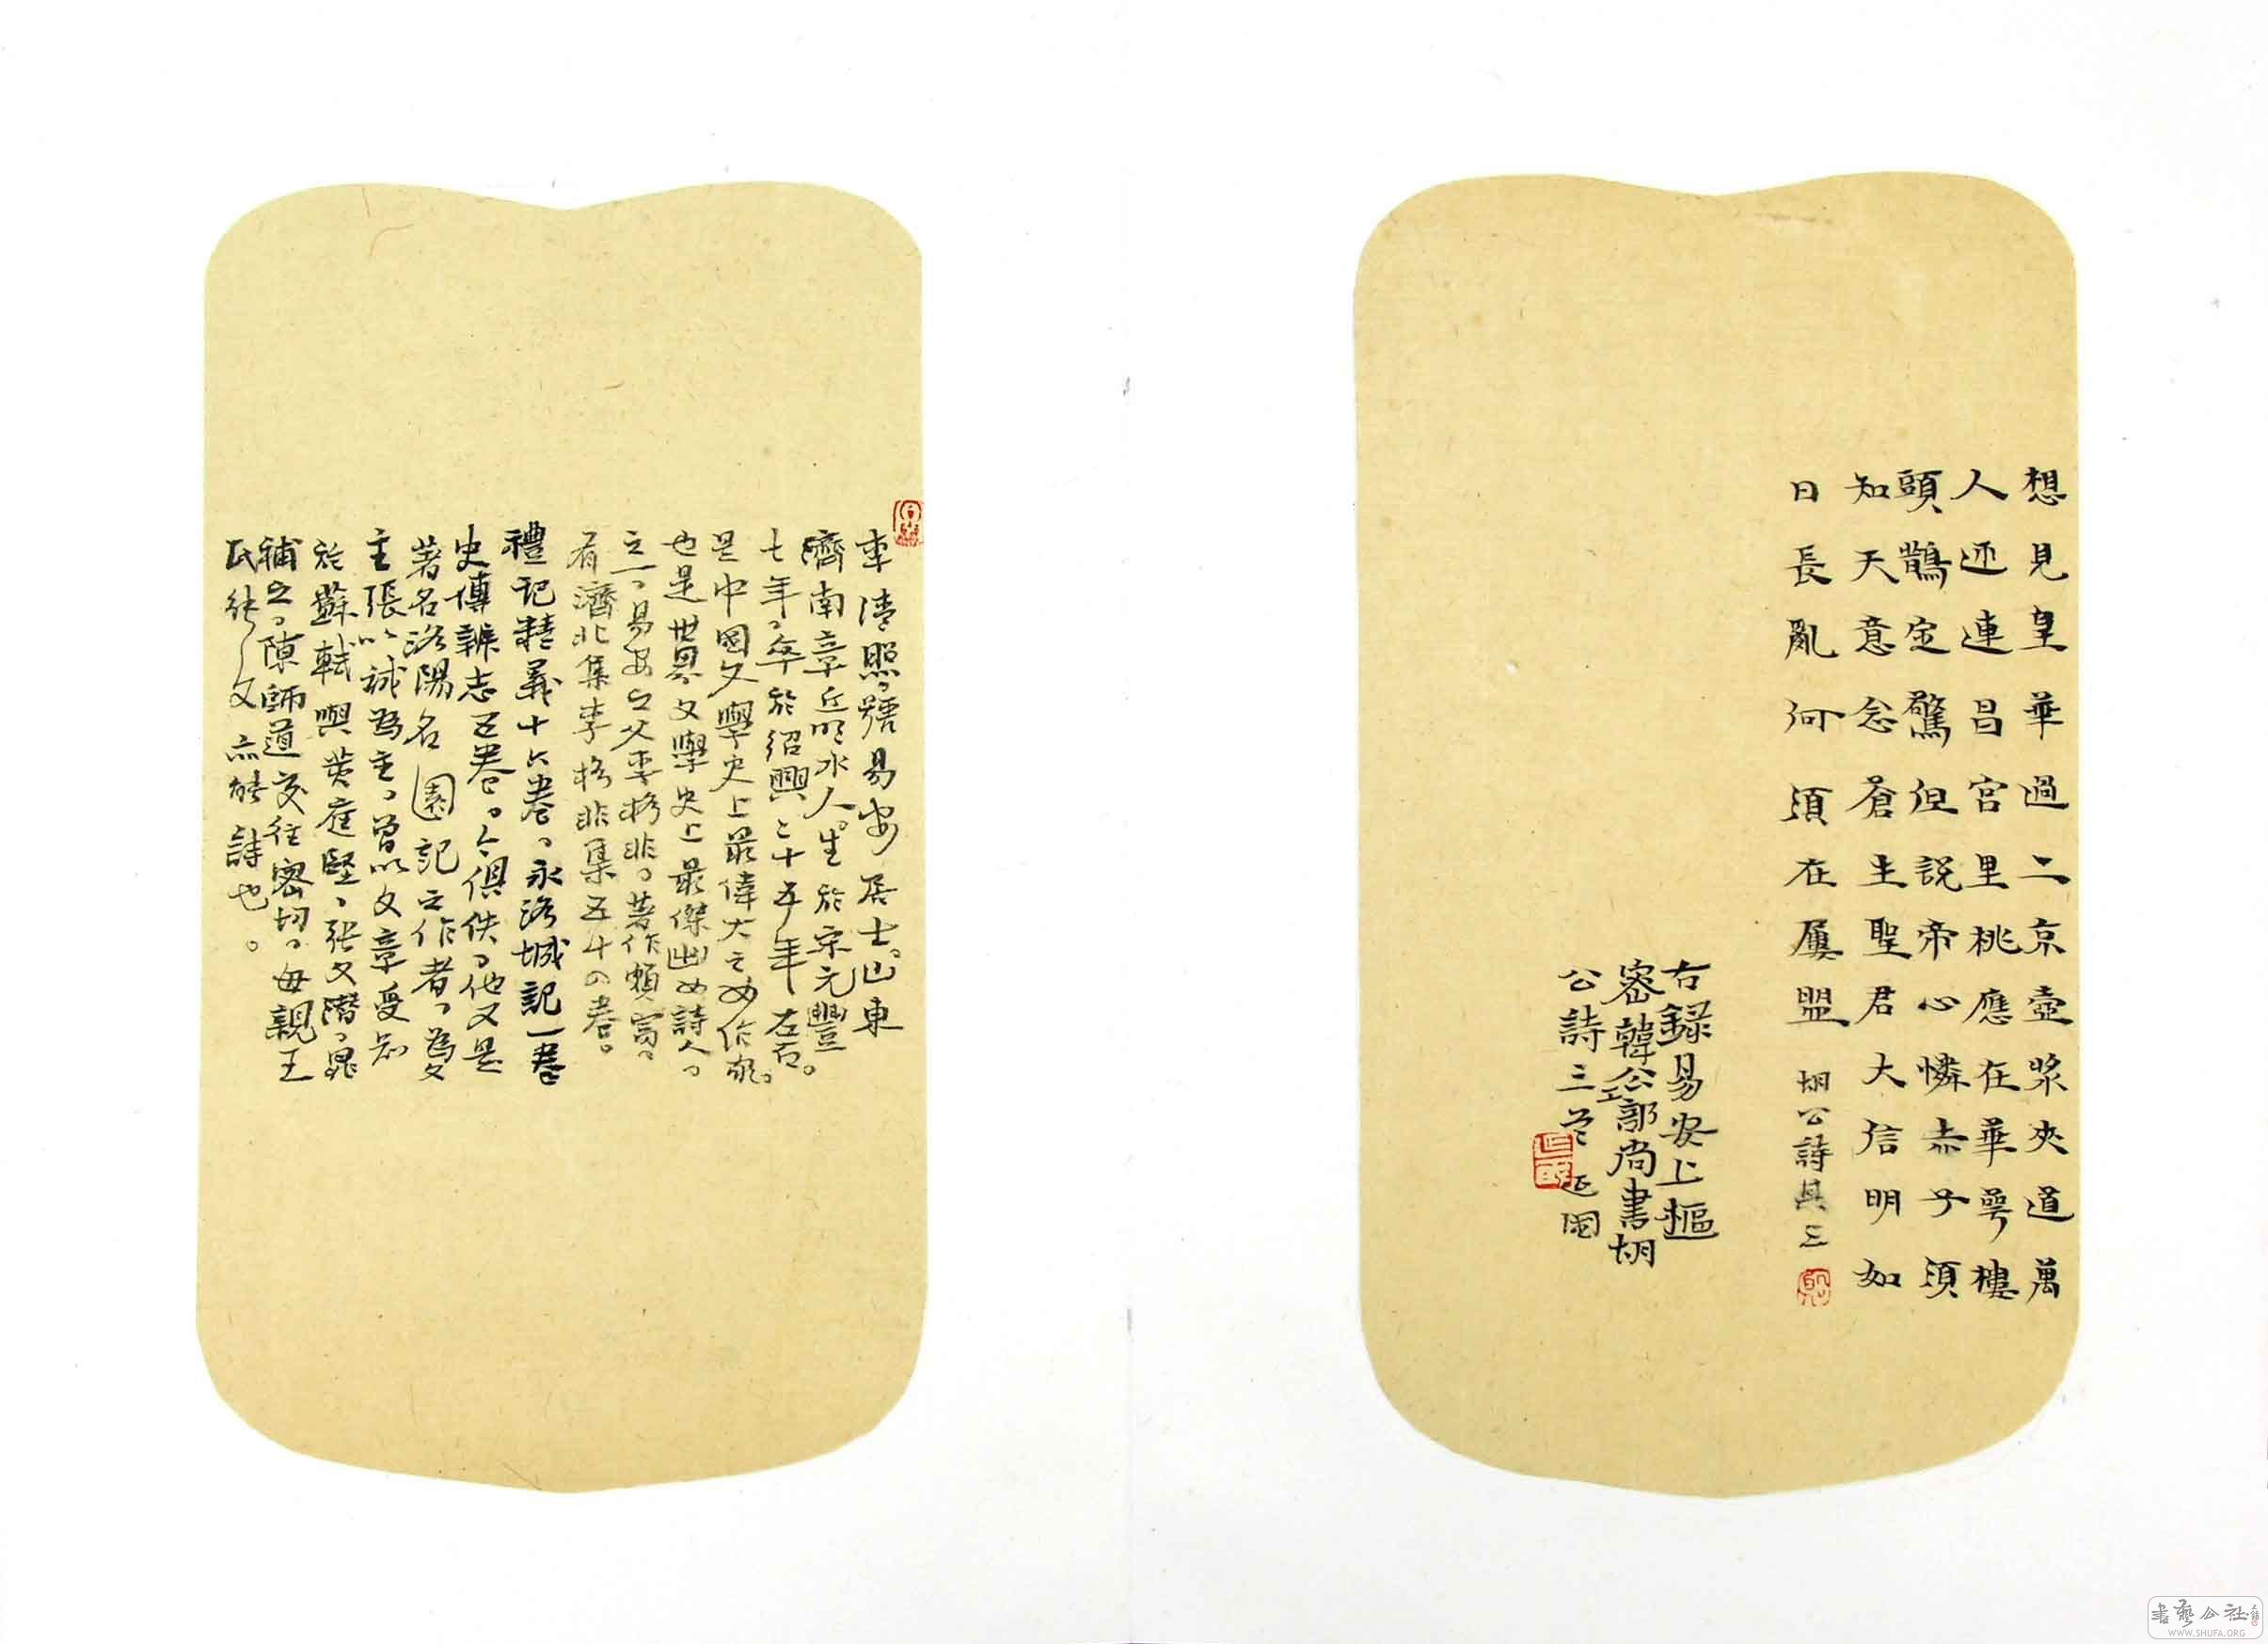 想見皇華過二京壺漿夾道萬
人迊連昌宮里桃應在華萼樓
頭鵲定驚但説帝心憐赤子須
知天意念蒼生聖君大信明如
日長亂何須在屢盟
胡公詩其三
右録易安上樞
密韓公工部尚書胡
公詩三首 延国
李清照、號易安居士。山東
濟南章丘明水人。生於宋元豐
七年、卒於紹興二十五年左右。
是中國文學史上最偉大之女作家。
也是世界文學史上最傑出女詩人、
之一、易安之父李格非、著作頗富、
有濟北集李格非集五十四卷。
禮記精義十六卷、永洛城記一卷
史傳辨志五卷。今俱佚、他又是
著名洛陽名園記之作者、為文
主張以誠為主、曾以文章受知
於蘇軾與黄庭堅、張文潛、晁
補之、陳師道交往密切、母親王
氏能文亦能詩也。
書藝公社
WWW.SHUFA.ORG